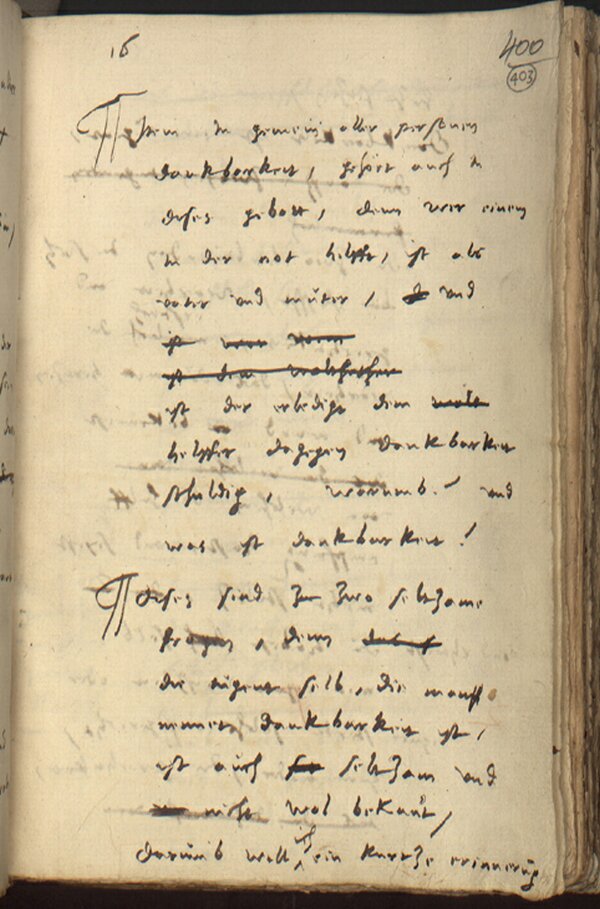 16
400
403
Item in gemein aller personen
dankbarkeit, gehört auch in
dises gebott, denn wer einem
in der not hilfft, ist als
vater und muter, und
ist der erledigt dem
helffer dagegen dankbarkeit
schuldig, warumb? und
was ist dankbarkeit?
dises sind zwo seltzame
fragen, denn
die tugent selb, die man
nennet dankbarkeit ist,
ist auch seltzam und
nicht wol bekant,
darumb will ich ein kurtze erinnerung